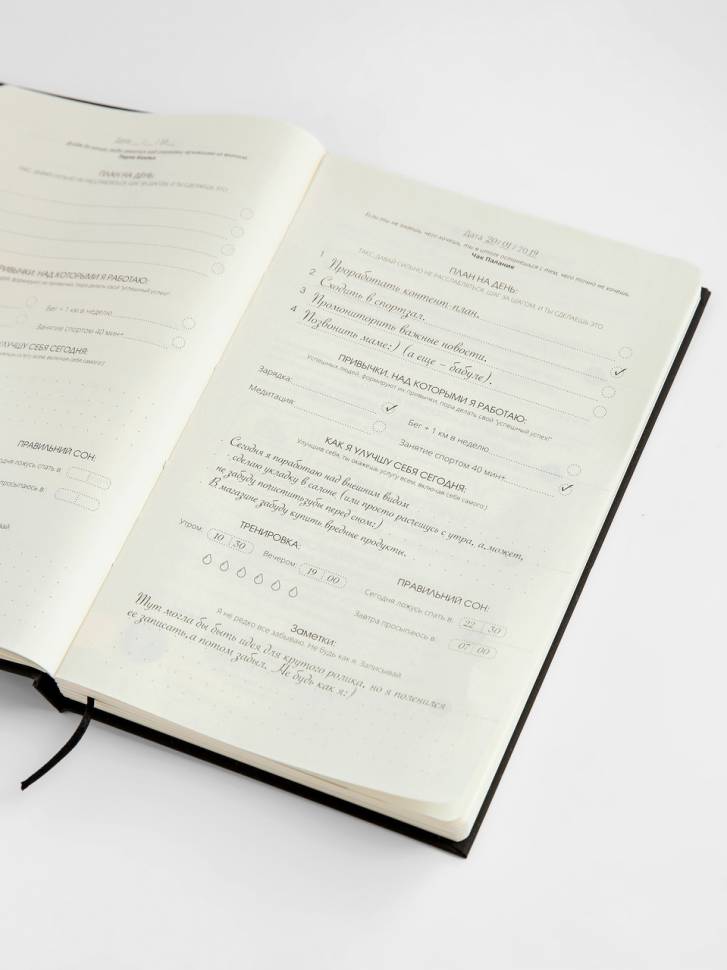 Дата
Лариса
ПЛАН НА ДЕНЬ:
ТАКС, ДАВАЙ СИЛЬНО НЕ РАССЛАБЛЯТЬСЯ, ШАГ ЗА ШАГОМ, И ТЫ СДЕЛАЕШЬ ЭТО
ПРИВЫЧКИ, НАД КОТОРЫМИ Я РАБОТАЮ:
формируют их привычки, пора делать свой "успешный успех!"
Бег + 1 км в неделю
Занятие спортом 40 мин+
УЛУЧШУ СЕБЯ СЕГОДНЯ:
ты окажешь услугу всем, включая себя самого:)
ПРАВИЛЬНИЙ СОН:
ложусь спать в:
просыпаюсь в:
Дата 20/01/2019
Если ты не знаешь, чего хочешь, ты в итоге останешься с тем, чего точно не хочешь.
Чак Паланик
ПЛАН НА ДЕНЬ:
ТАКС, ДАВАЙ СИЛЬНО НЕ РАССЛАБЛЯТЬСЯ, ШАГ ЗА ШАГОМ, И ТЫ СДЕЛАЕШЬ ЭТО
1 Проработать контент-план.
2 Сходить в спортзал.
3 Промониторить важные новости.
4 Позвонить маме:) (а еще - бабуле).
ПРИВЫЧКИ, НАД КОТОРЫМИ Я РАБОТАЮ:
Успешных людей, формируют их привычки, пора делать свой "успешный успех!"
Зарядка: Бег + 1 км в неделю
Медитация: Занятие спортом 40 мин+
КАК Я УЛУЧШУ СЕБЯ СЕГОДНЯ:
Улучшив себя, ты окажешь услугу всем, включая себя самого:)
Сегодня я поработаю над внешним видом
- сделаю укладку в салоне (или просто расчешусь с утра, а, может,
не забуду почистить зубы перед сном:)
В магазине забуду купить вредные продукты.
ТРЕНИРОВКА:
Утром: 10 30 Вечером: 19 00
ПРАВИЛЬНИЙ СОН:
Сегодня ложусь спать в: 22 30
Завтра просыпаюсь в: 07 00
Заметки:
Я не редко все забываю. Не будь как я. Записывай.
Тут могла бы быть идея для крутого ролика, но я поленился
ее записать,а потом забыл. Не будь как я:)